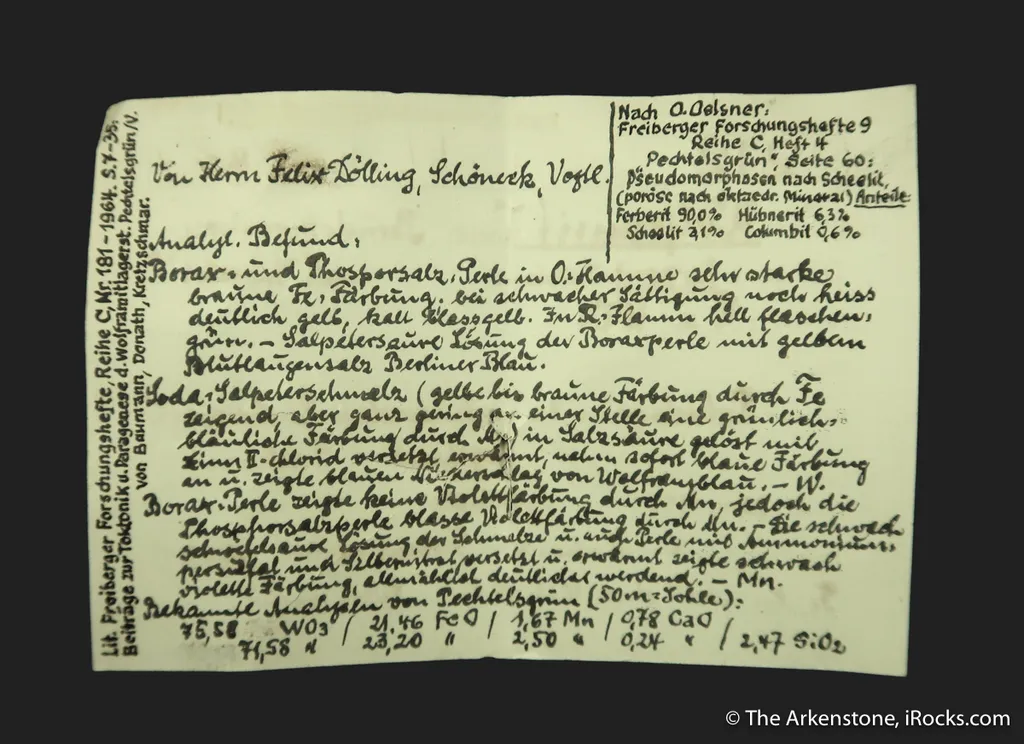 Lit. Freiberger Forschungshefte, Reihe C, Nr. 181 - 1964. S. 7-35:
Beiträge zur Tektonik u. Paragenese d. Wolframitlagerst. Pechtelsgrün/V.
von Baumann, Donath, Kretzschmar.
Von Herrn Felix Dölling, Schöneck, Vogtl.
Nach O. Oelsner:
Freiberger Forschungshefte 9
Reihe C, Heft 4
"Pechtelsgrün", Seite 60:
Pseudomorphosen nach Scheelit,
(poröse nach oktaedr. Mineral) Anteile
Ferberit 90,0% Hübnerit 6,3%
Scheelit 2,1% Columbit 0,6%
Analyt. Befund:
Borax- und Phosporsalz-Perle in O-Flamme sehr starke
braune Fe-Färbung. bei schwacher Sättigung noch heiss
deutlich gelb, kalt blassgelb. In R-Flamm hell flaschen-
grün. — Salpetersaure Lösung der Boraxperle mit gelbem
Blutlaugensalz Berliner Blau.
Soda-Salpeterschmelz (gelbe bis braune Färbung durch Fe
zeigend, aber ganz gering an einer Stelle eine grünlich-
bläuliche Färbung durch Mn) in Salzsäure gelöst mit
Zinn II-chlorid versetzt erwärmt, nahm sofort blaue Färbung
an u. zeigte blauen Niederschlag von Wolframblau. — W.
Borax-Perle zeigte keine Violettfärbung durch Mn, jedoch die
Phosphorsalzperle blasse Violettfärbung durch Mn. — Die schwach
Lösung der Schmelze u. auch Perle mit Ammonium-
persulfat und Silbernitrat versetzt u. erwärmt zeigte schwach
violette Färbung, allmählich deutlicher werdend. — Mn.
Bekannte Analysen von Pechtelsgrün (50m-Sohle):
75,58 WO3 / 21,46 FeO / 1,67 Mn / 0,78 CaO
71,58 " 23,20 " 2,50 " 0,24 " / 2,47 SiO2
© The Arkenstone, iRocks.com